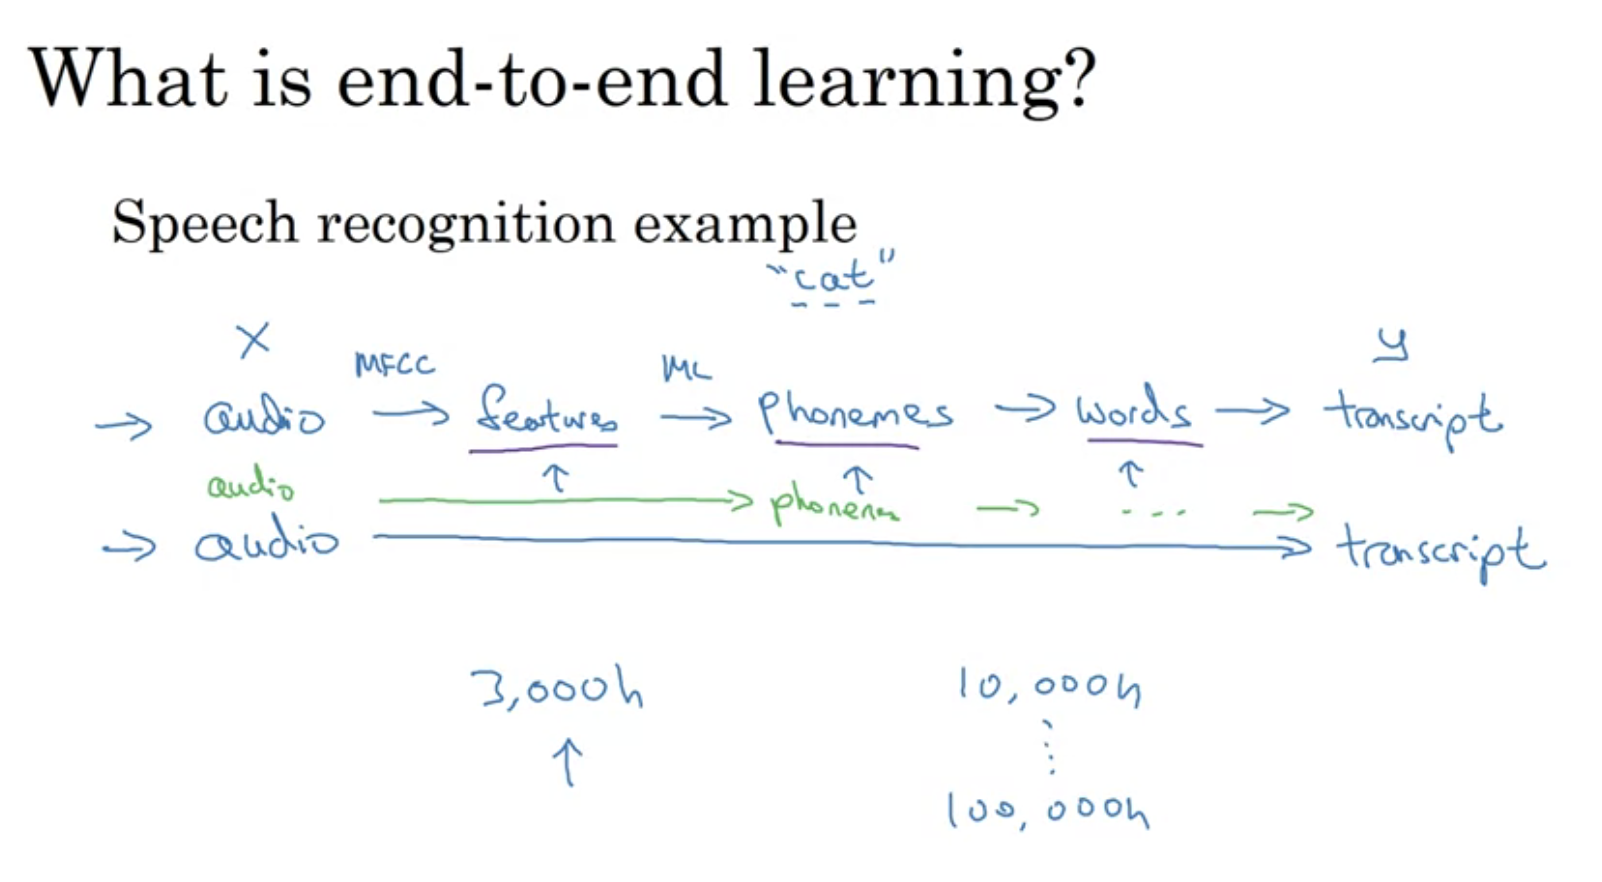 What is end-to-end learning?
Speech recognition example
"cat"
X
y
MFCC
ML
→ audio → features → phonemes → words → transcript
↑ ↑ ↑
audio → phonemes → ... →
→ audio → transcript
3,000h
10,000h
↑
⋮
100,000h